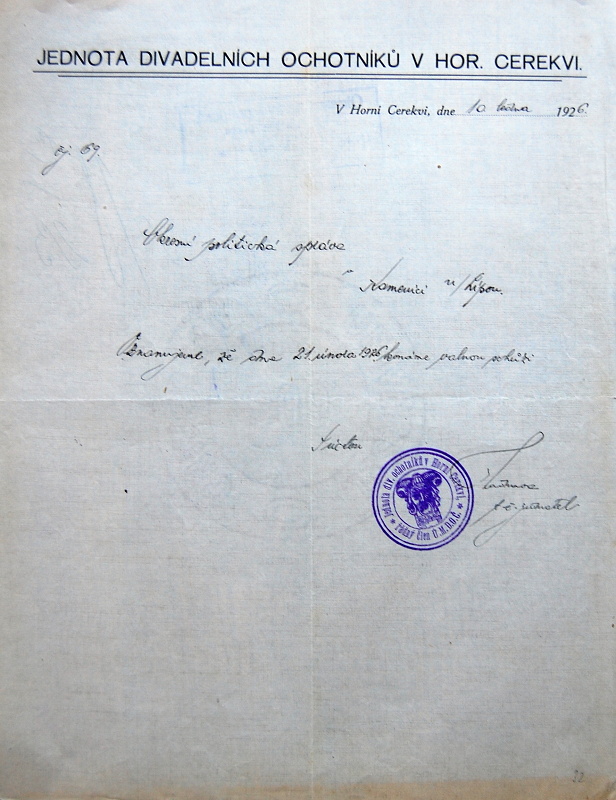 JEDNOTA DIVADELNÍCH OCHOTNÍKŮ V HOR. CEREKVI.
V Horní Cerekvi, dne 10. ledna 1926.
čj. 69.
Okresní politická správa
v Kamenici n/Lipou.
Oznamujeme, že dne 21. února 1926 konáme valnou schůzi
S úctou
Jednota div. ochotníků v Horní Cerekvi.
řádný člen Ú.M.D.O.Č.
t. č. jednatel
22